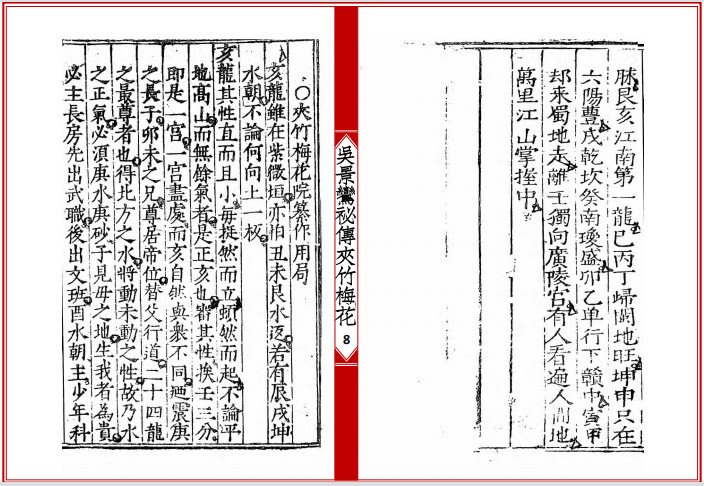 脉艮亥江南第一龍巳丙丁歸闕地旺坤申只在
六陽豊戌乾坎癸南瓊盛卯乙单行下贛中寅甲
却來蜀地走離壬獨向廣陵宫有人看遍人間地
萬里江山掌握中
吳景鸞祕傳夾竹梅花
8
○夾竹梅花院纂作用局
亥龍雖在紫微垣亦怕丑未艮水返若有辰戌坤
水朝不論何向上一校
亥龍其性直而且小毋挺然而立頓然而起不論平
地高山而無餘氣者是正亥也審其性情壬三分
即是一宫一宫盡處而亥自然與衆不同廼震庚
之長子卯未之兄尊居帝位替父行道二十四龍
之最尊者也得北方之水將動未動之性故乃水
之正氣必須庚水庚砂子見母之地生我者為貴
必主長房先出武職後出文班酉水朝主少年科